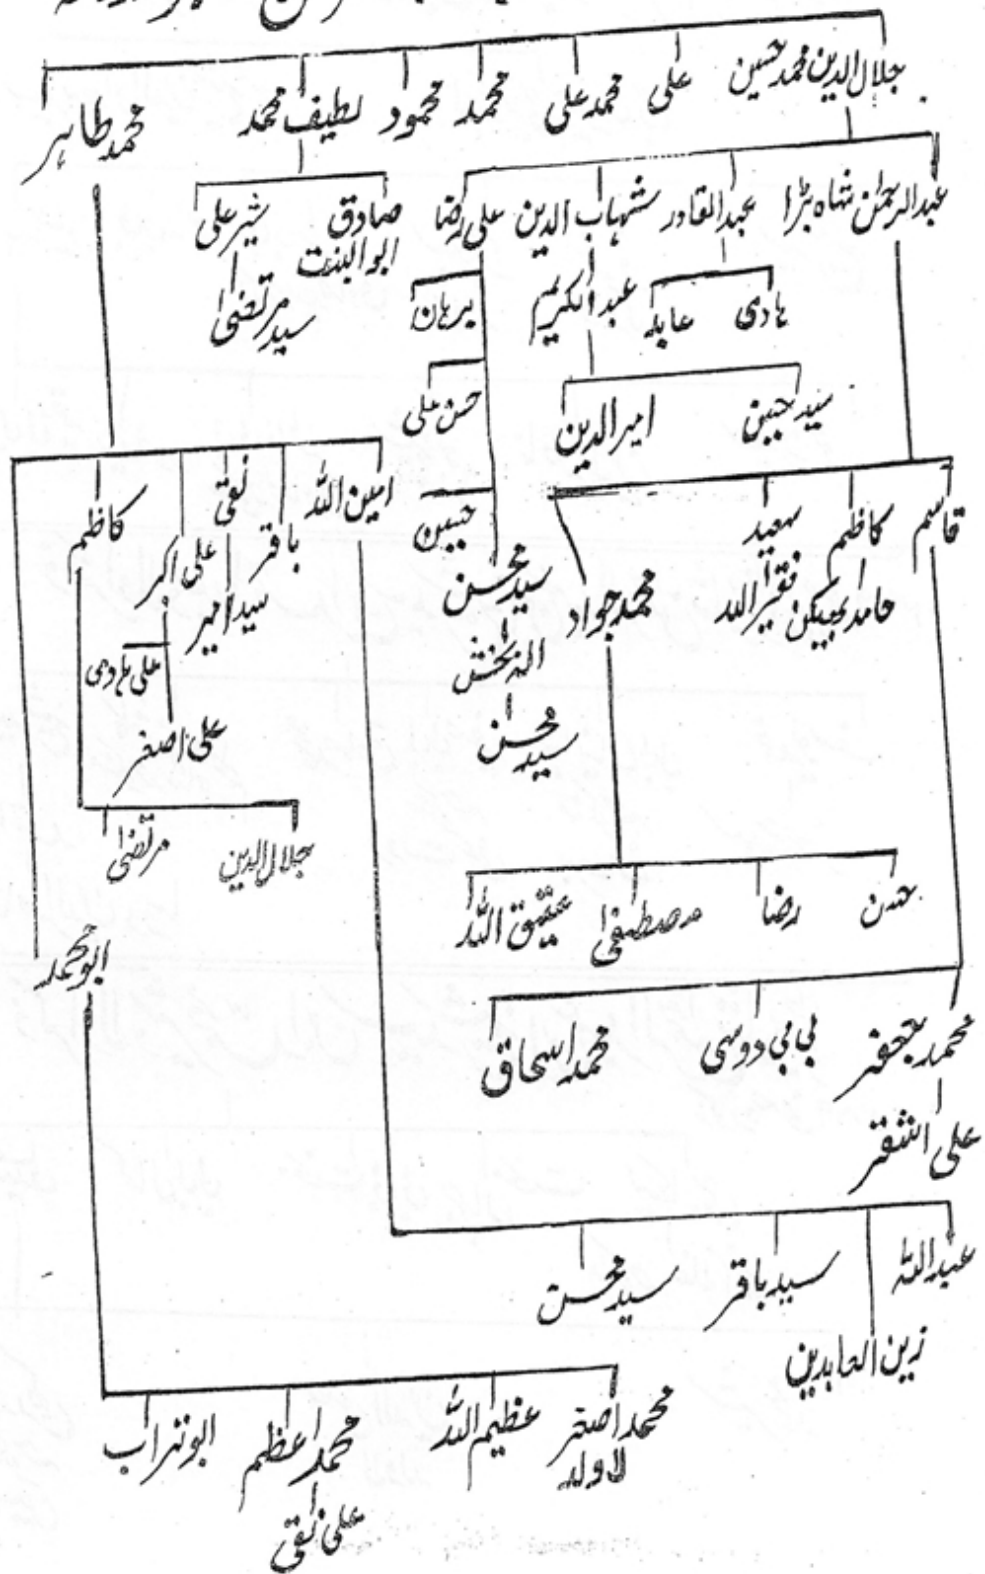 جلال الدین محمد حسین علی محمد علی محمد محمود لطیف محمد محمد طاہر
عبدالرحمٰن شاہ بڑا عبدالقادر شہاب الدین علی رضا صادق ابوالبنت شیر علی
ہادی عابد عبدالکریم برہان سید مرتضیٰ
سید حسین امیر الدین حسن علی
قاسم کاظم سعید حسین امین اللہ باقر نقی علی اکبر کاظم
حامد بھیکن فقیر اللہ محمد جواد سید محسن سید امیر
الہ بخش علی ہادی
سید محسن علی اصغر
جلال الدین مرتضیٰ
حسن رضا مصطفیٰ عتیق اللہ ابو محمد
محمد جعفر بی بی دوسی محمد اسحاق
علی اشقر
عبداللہ سید باقر سید محسن
زین العابدین
محمد اصغر عظیم اللہ محمد اعظم ابوتراب
لاولد
علی نقی